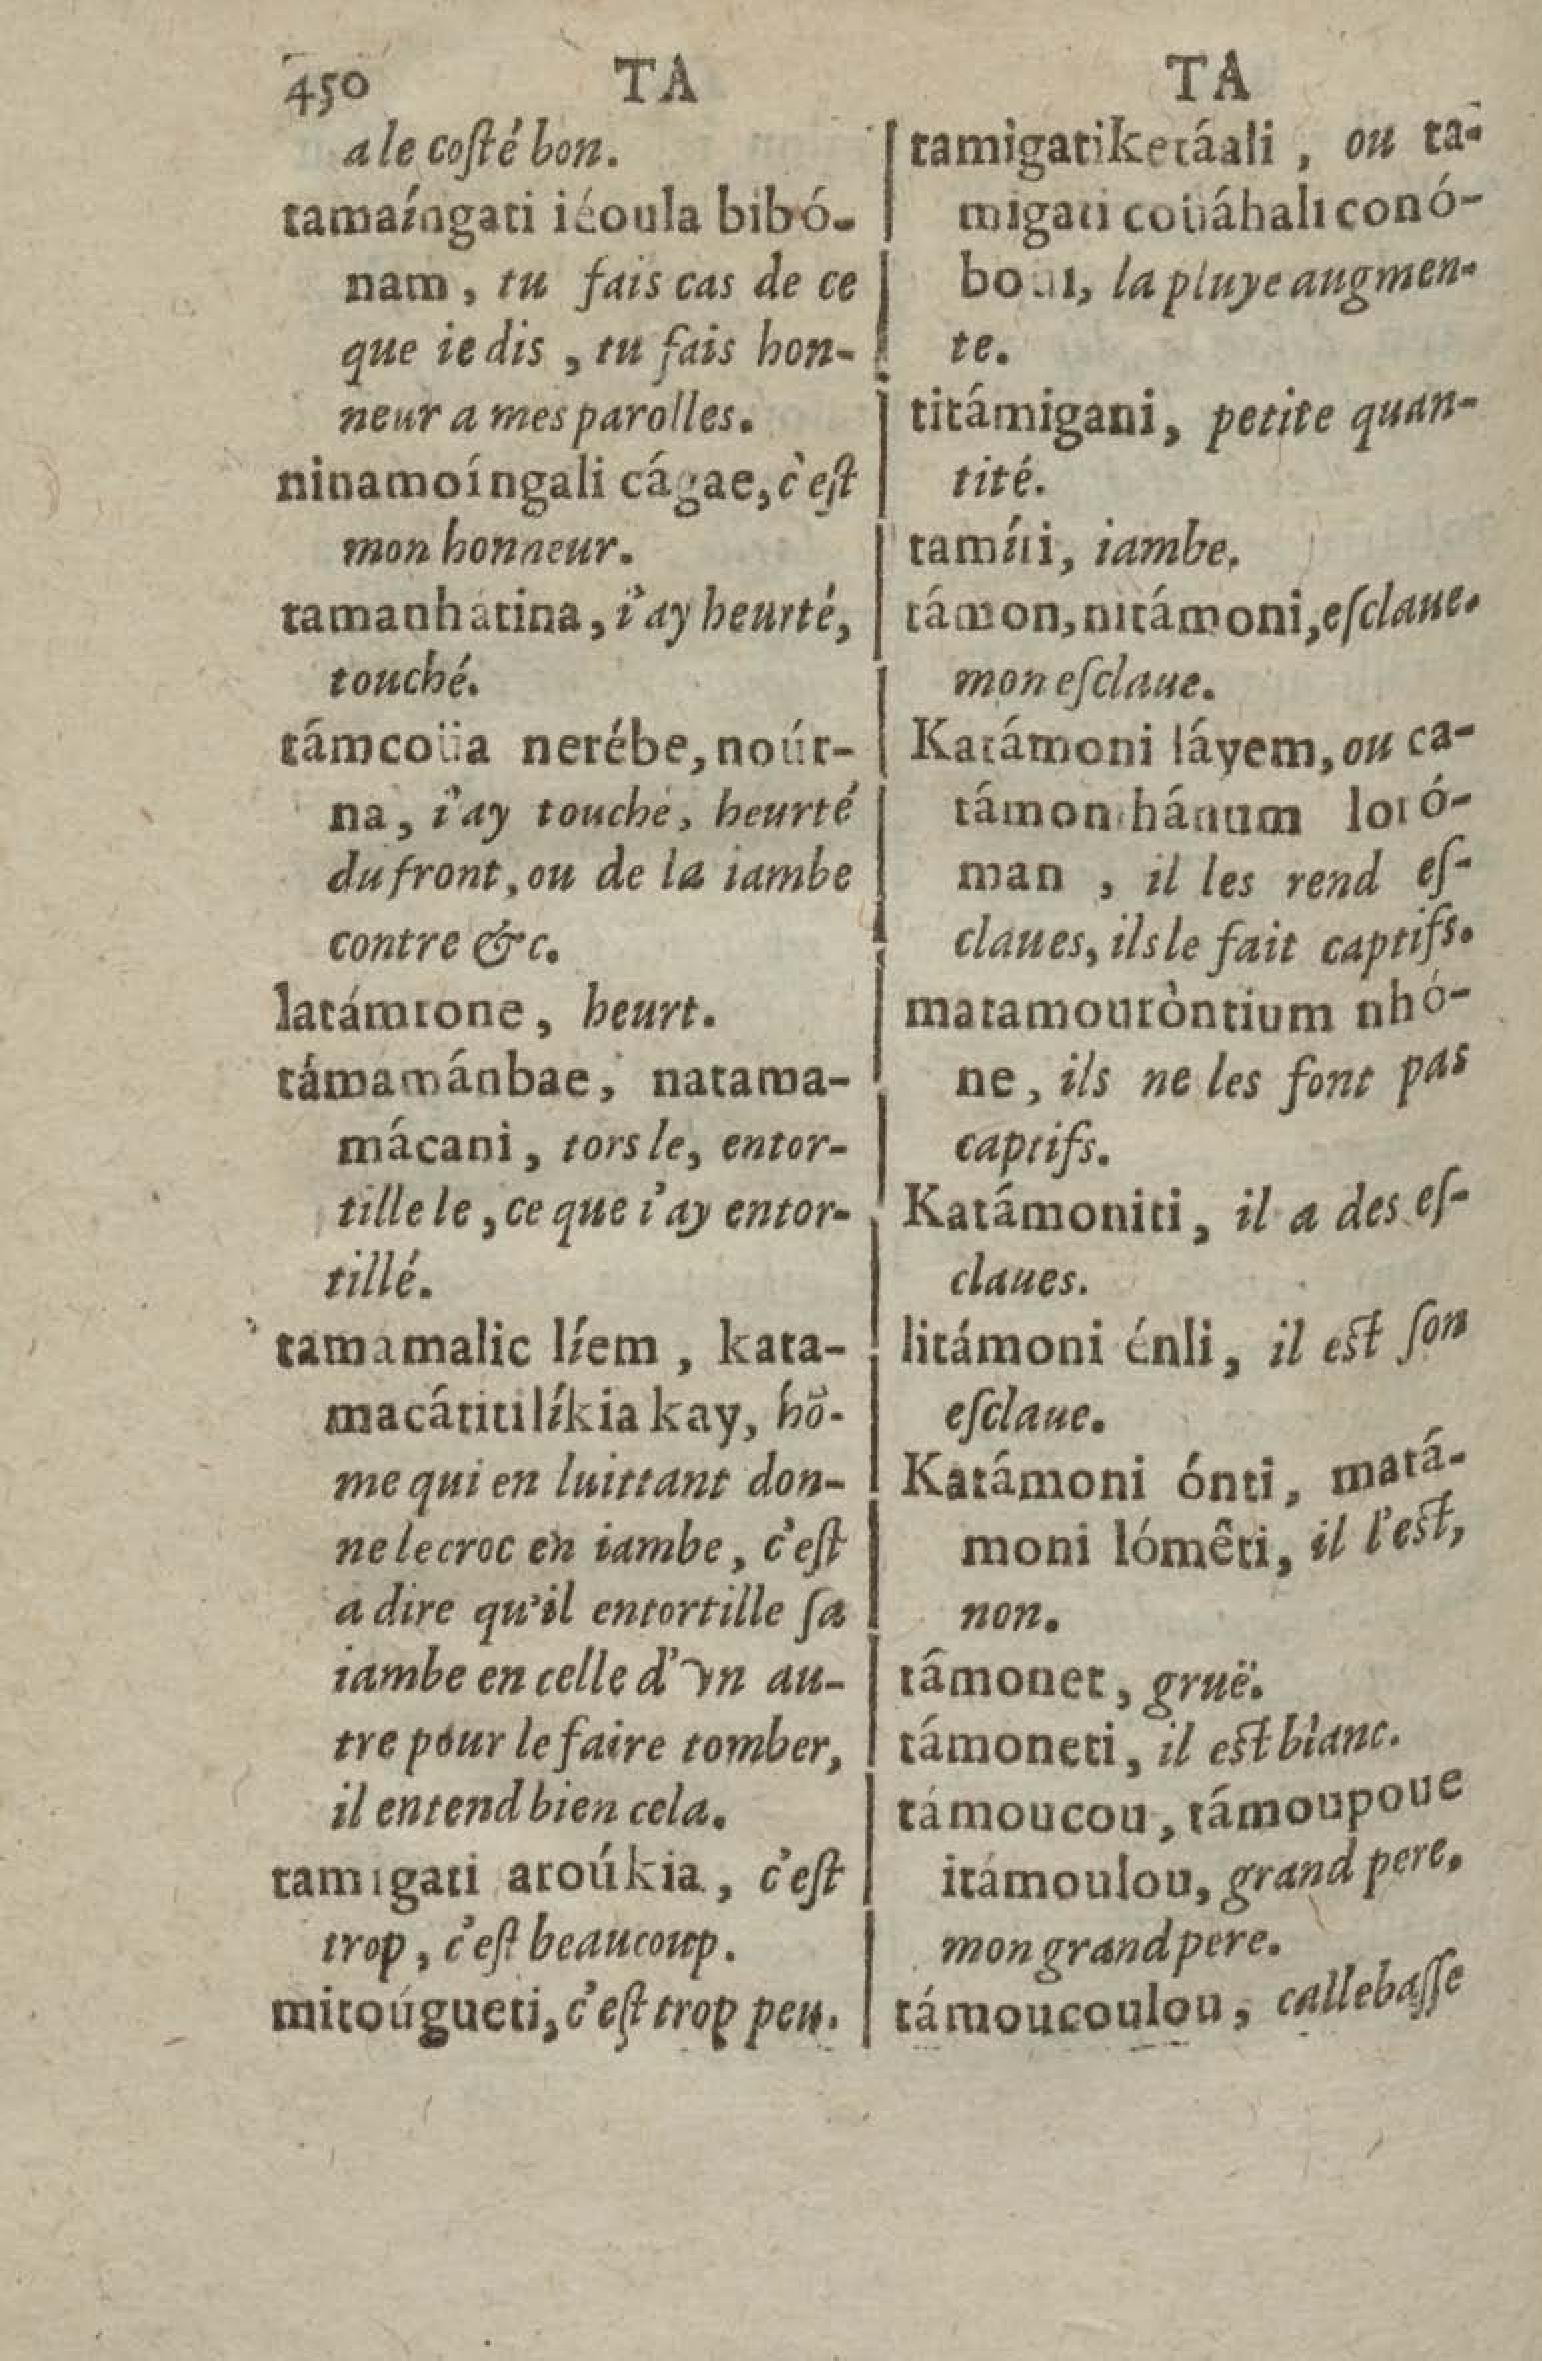 450 TA TA
a le costé bon.
tamaíngati iéoula bibó-
nam, tu fais cas de ce
que ie dis, tu fais hon-
neur a mes parolles.
ninamoíngali cágae, c'eſt
mon honneur.
tamanhátina, i'ay heurté,
touché.
támcoüa nerébe, noúr-
na, i'ay touché, heurté
du front, ou de la iambe
contre &c.
latámtone, heurt.
támamánbae, natama-
mácani, tors le, entor-
tille le, ce que i'ay entor-
tillé.
tamamalic líem, kata-
macátitilíkia kay, hõ-
me qui en luittant don-
ne le croc en iambe, c'eſt
a dire qu'il entortille ſa
iambe en celle d'vn au-
tre pour le faire tomber,
il entend bien cela.
tamigati atoúkia, c'eſt
trop, c'eſt beaucoup.
mitoúgueti, c'eſt trop peu.
tamigatiketáali, ou ta-
migati coüáhali conó-
la pluye augmen-
te.
titámigani, petite quan-
tité.
iambe.
támon, nitámoni, eſclaue.
mon eſclaue.
Katámoni láyem, ou ca-
támon hánum loró-
man, il les rend eſ-
claues, ils le fait captifs.
matamouròntium nhó-
ne, ils ne les font pas
captifs.
Katámoniti, il a des eſ-
claues.
litámoni énli, il eſt ſon
eſclaue.
Katámoni ónti, matá-
moni lómêti, il l'eſt,
non.
támonet, gruë.
támoneti, il eſt blanc.
támoucou, támoupoue
itámoulou, grand pere.
mon grand pere.
támoucoulou, callebaſſe